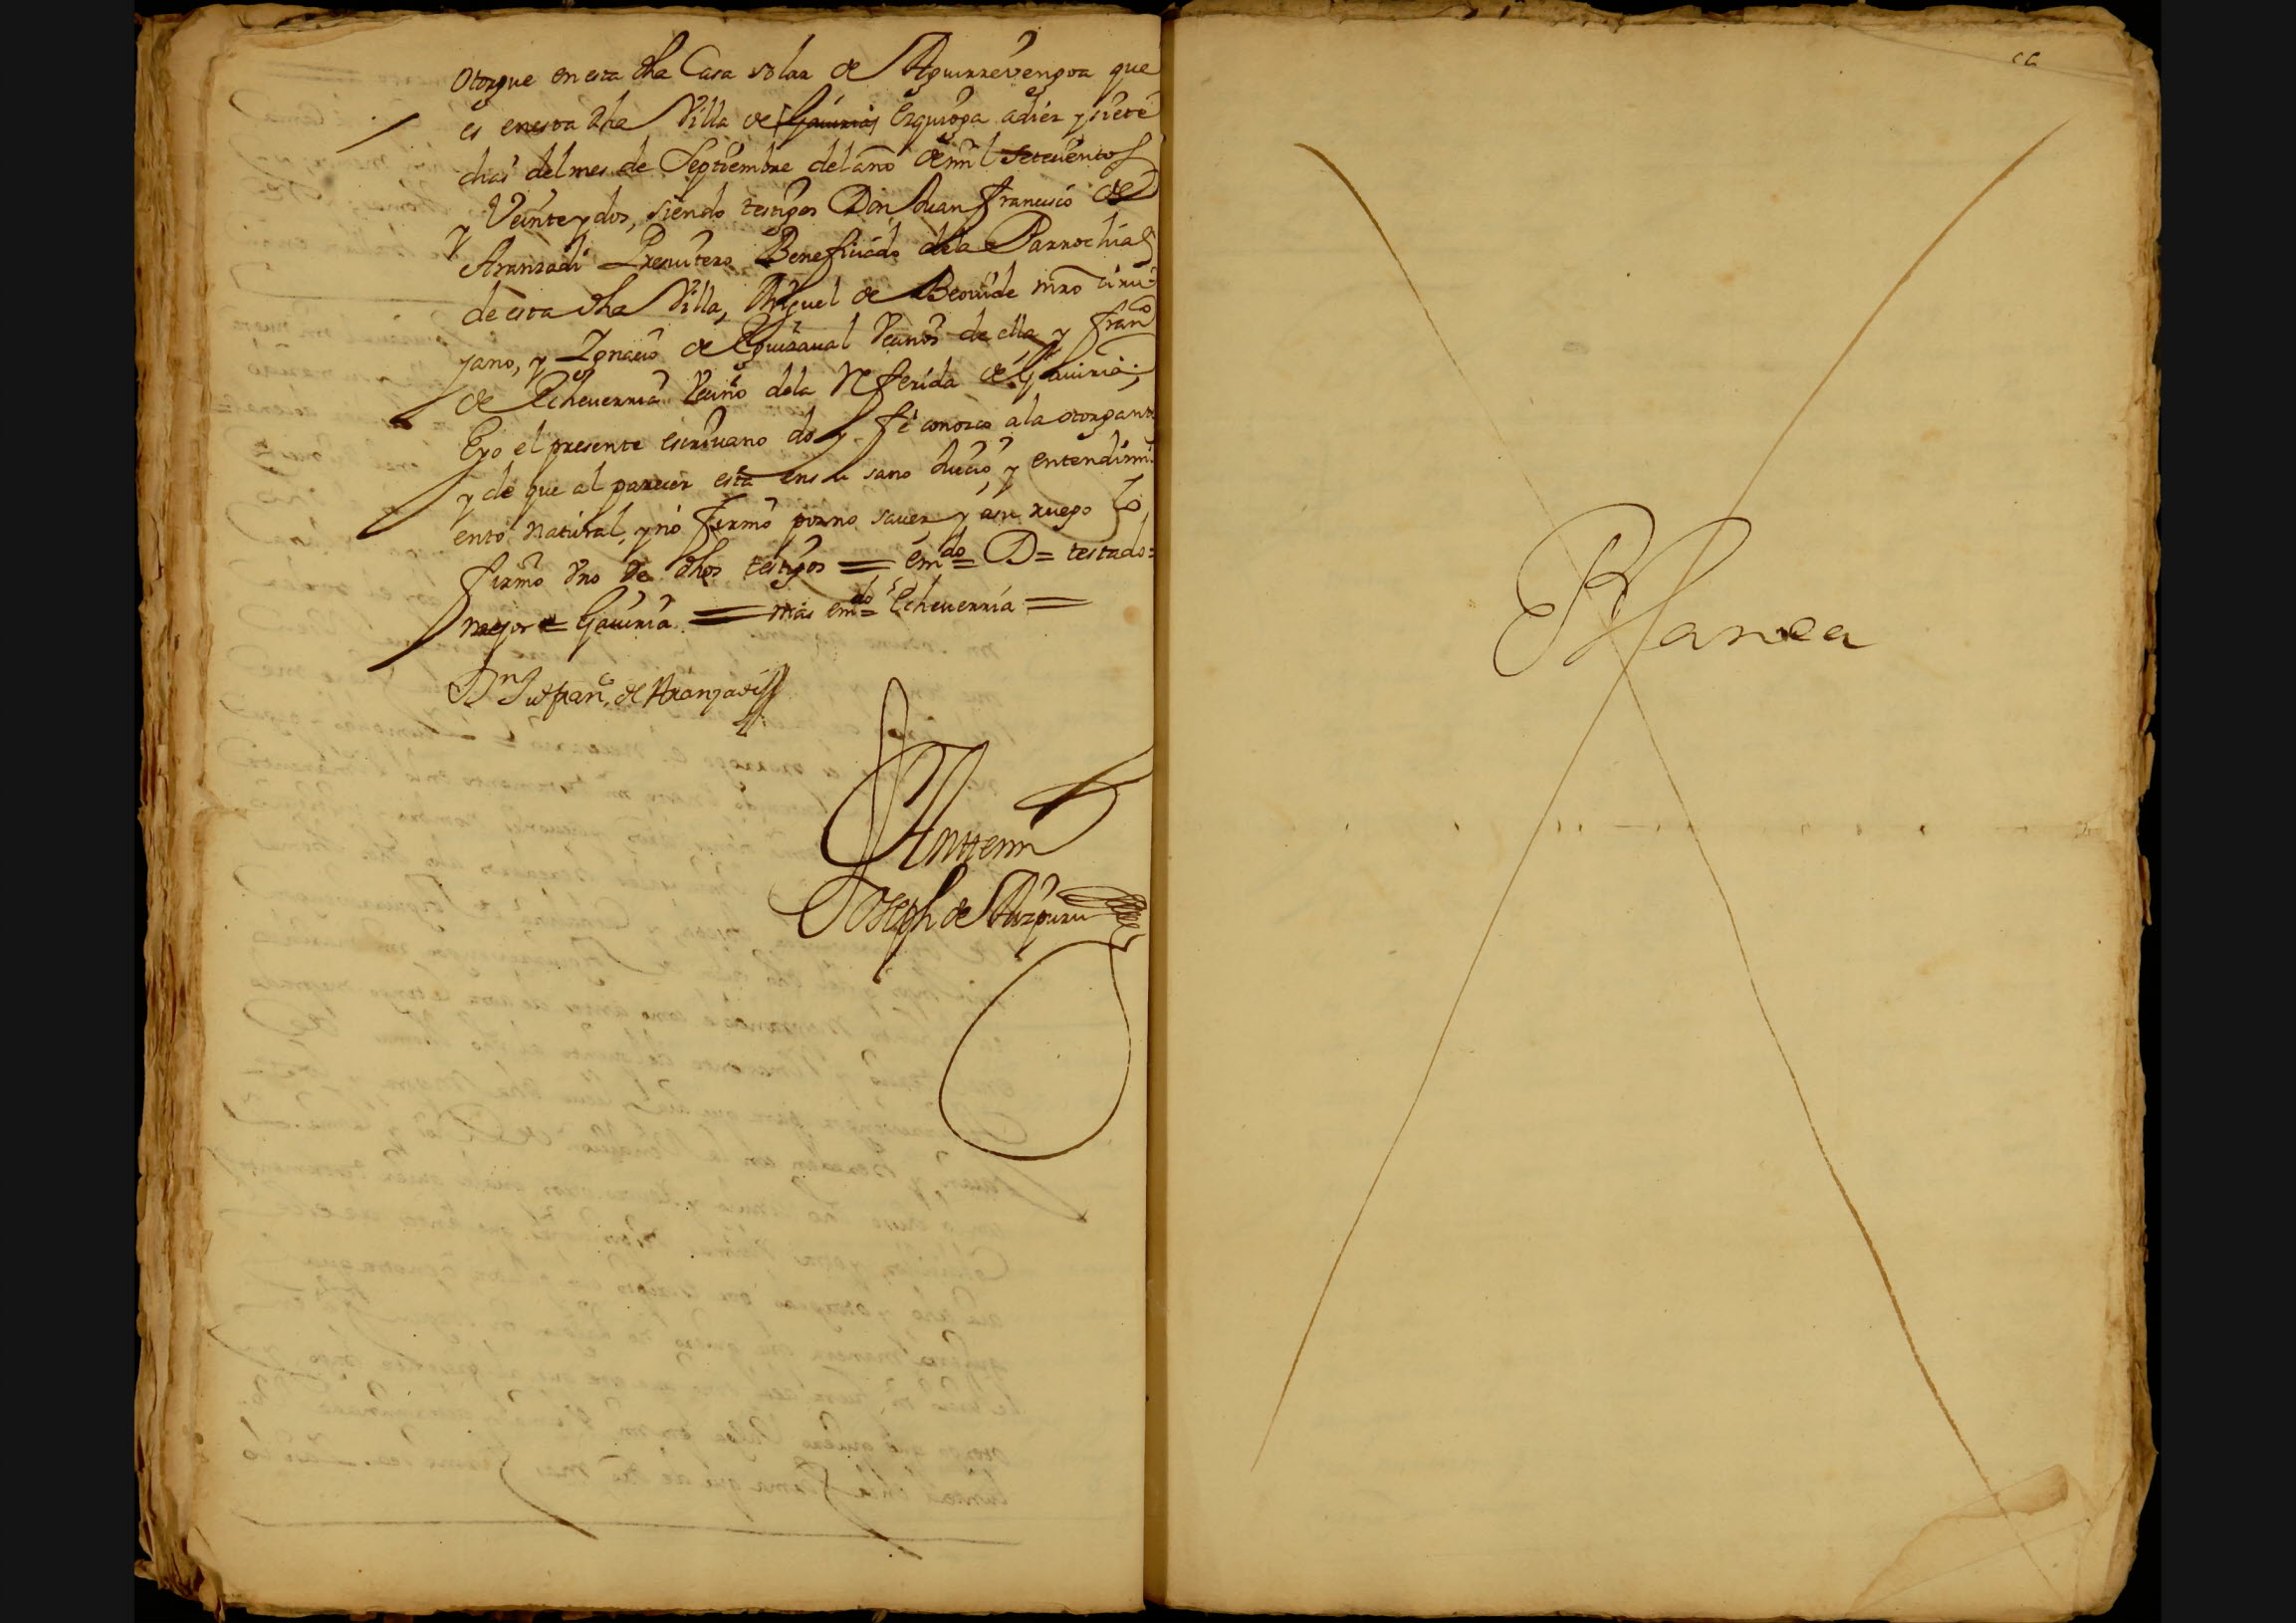 otorgue en esta dha Casa solar de Aguirrevengoa que
es en esta dha Villa de Gauiria Ezquioga adiez y siete
dias del mes de Septiembre del año de mil setecientos
y Veinte y dos, siendo testigos Don Juan Francisco de
Aranzadi Presuitero Beneficiado dela Parrochial
de esta dha Villa, Miguel de Beouide mro ciru-
jano, y Ignacio de Eguizaual Vecinos de ella, y franco
de Echeuerria Vecino dela Referida de Gauiria;
E yo el presente escriuano doy fé conozco ala otorgante
y de que al parecer está en su sano Juicio, y entendimi-
ento natural, y nó firmó por no sauer, y á su ruego lo
firmó Vno de dhos testigos = emdo = D = testado =
mejor = Gauiria = mas emdo = Echeuerria =
Dn Ju franco de Aranzadi
Antemi
Joseph de Aizpuru
Blanca